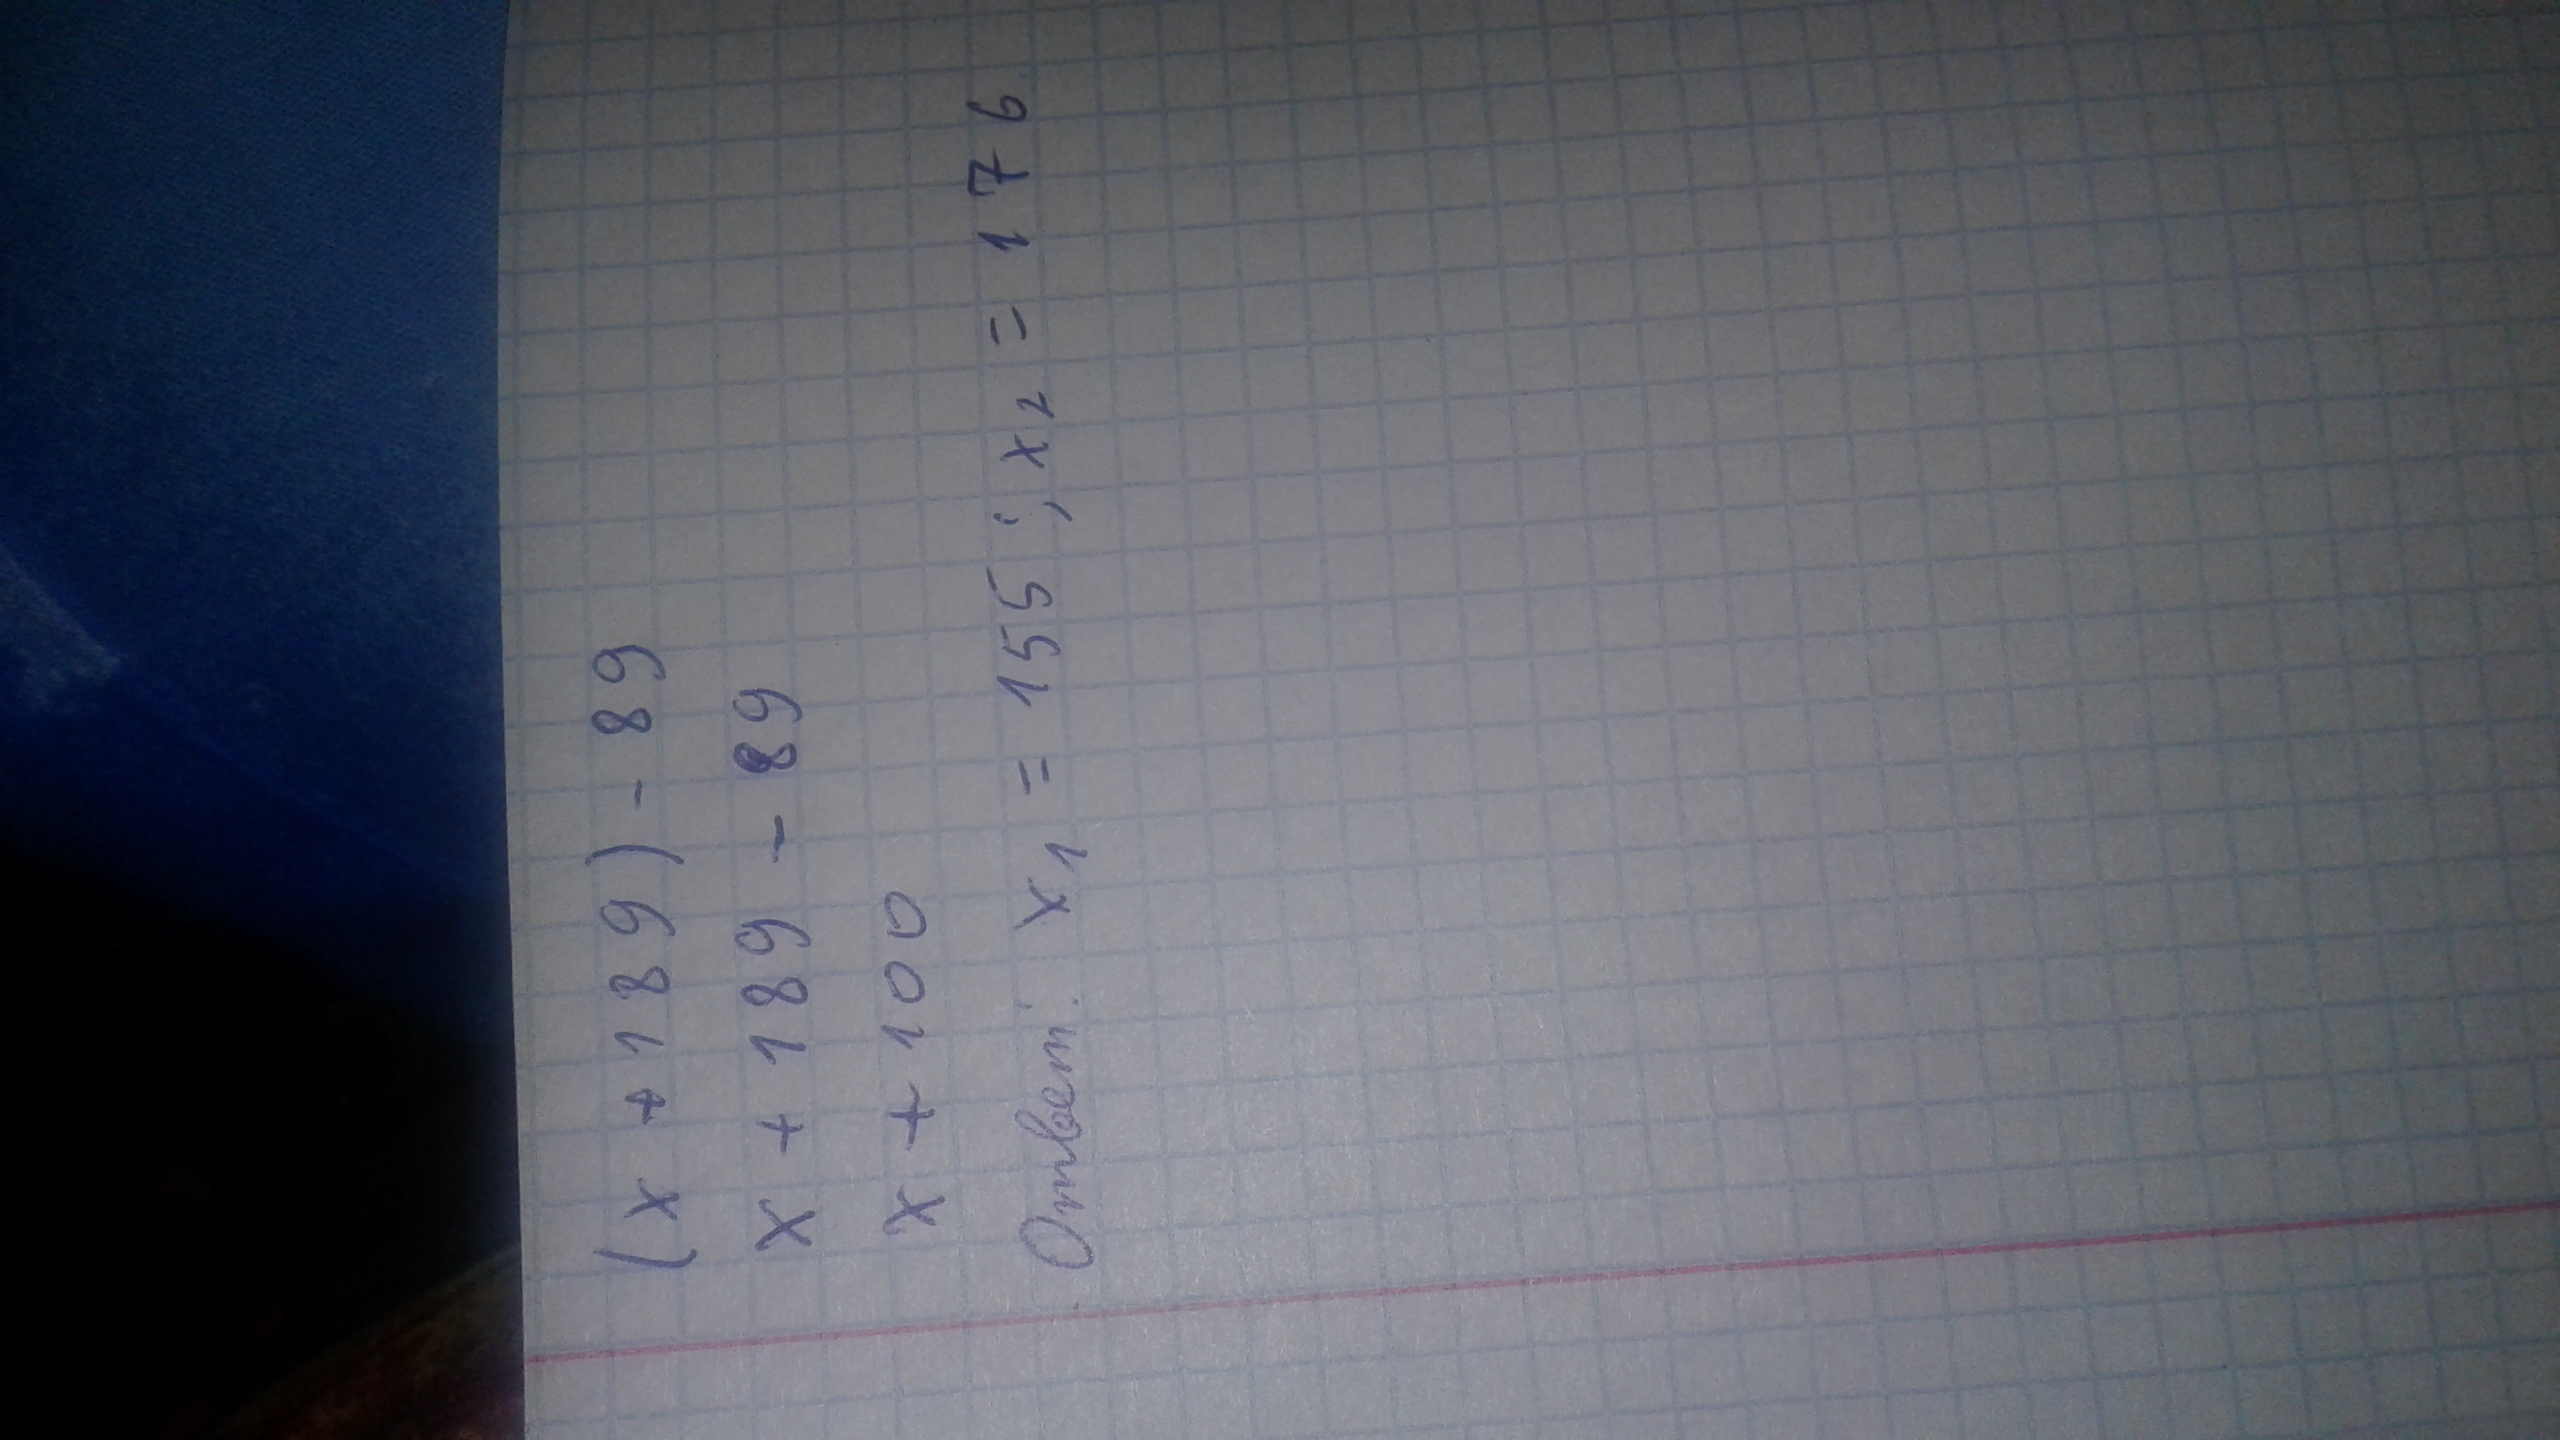 (x + 189) - 89
x + 189 - 89
x + 100
Ответ: x₁ = 155; x₂ = 176